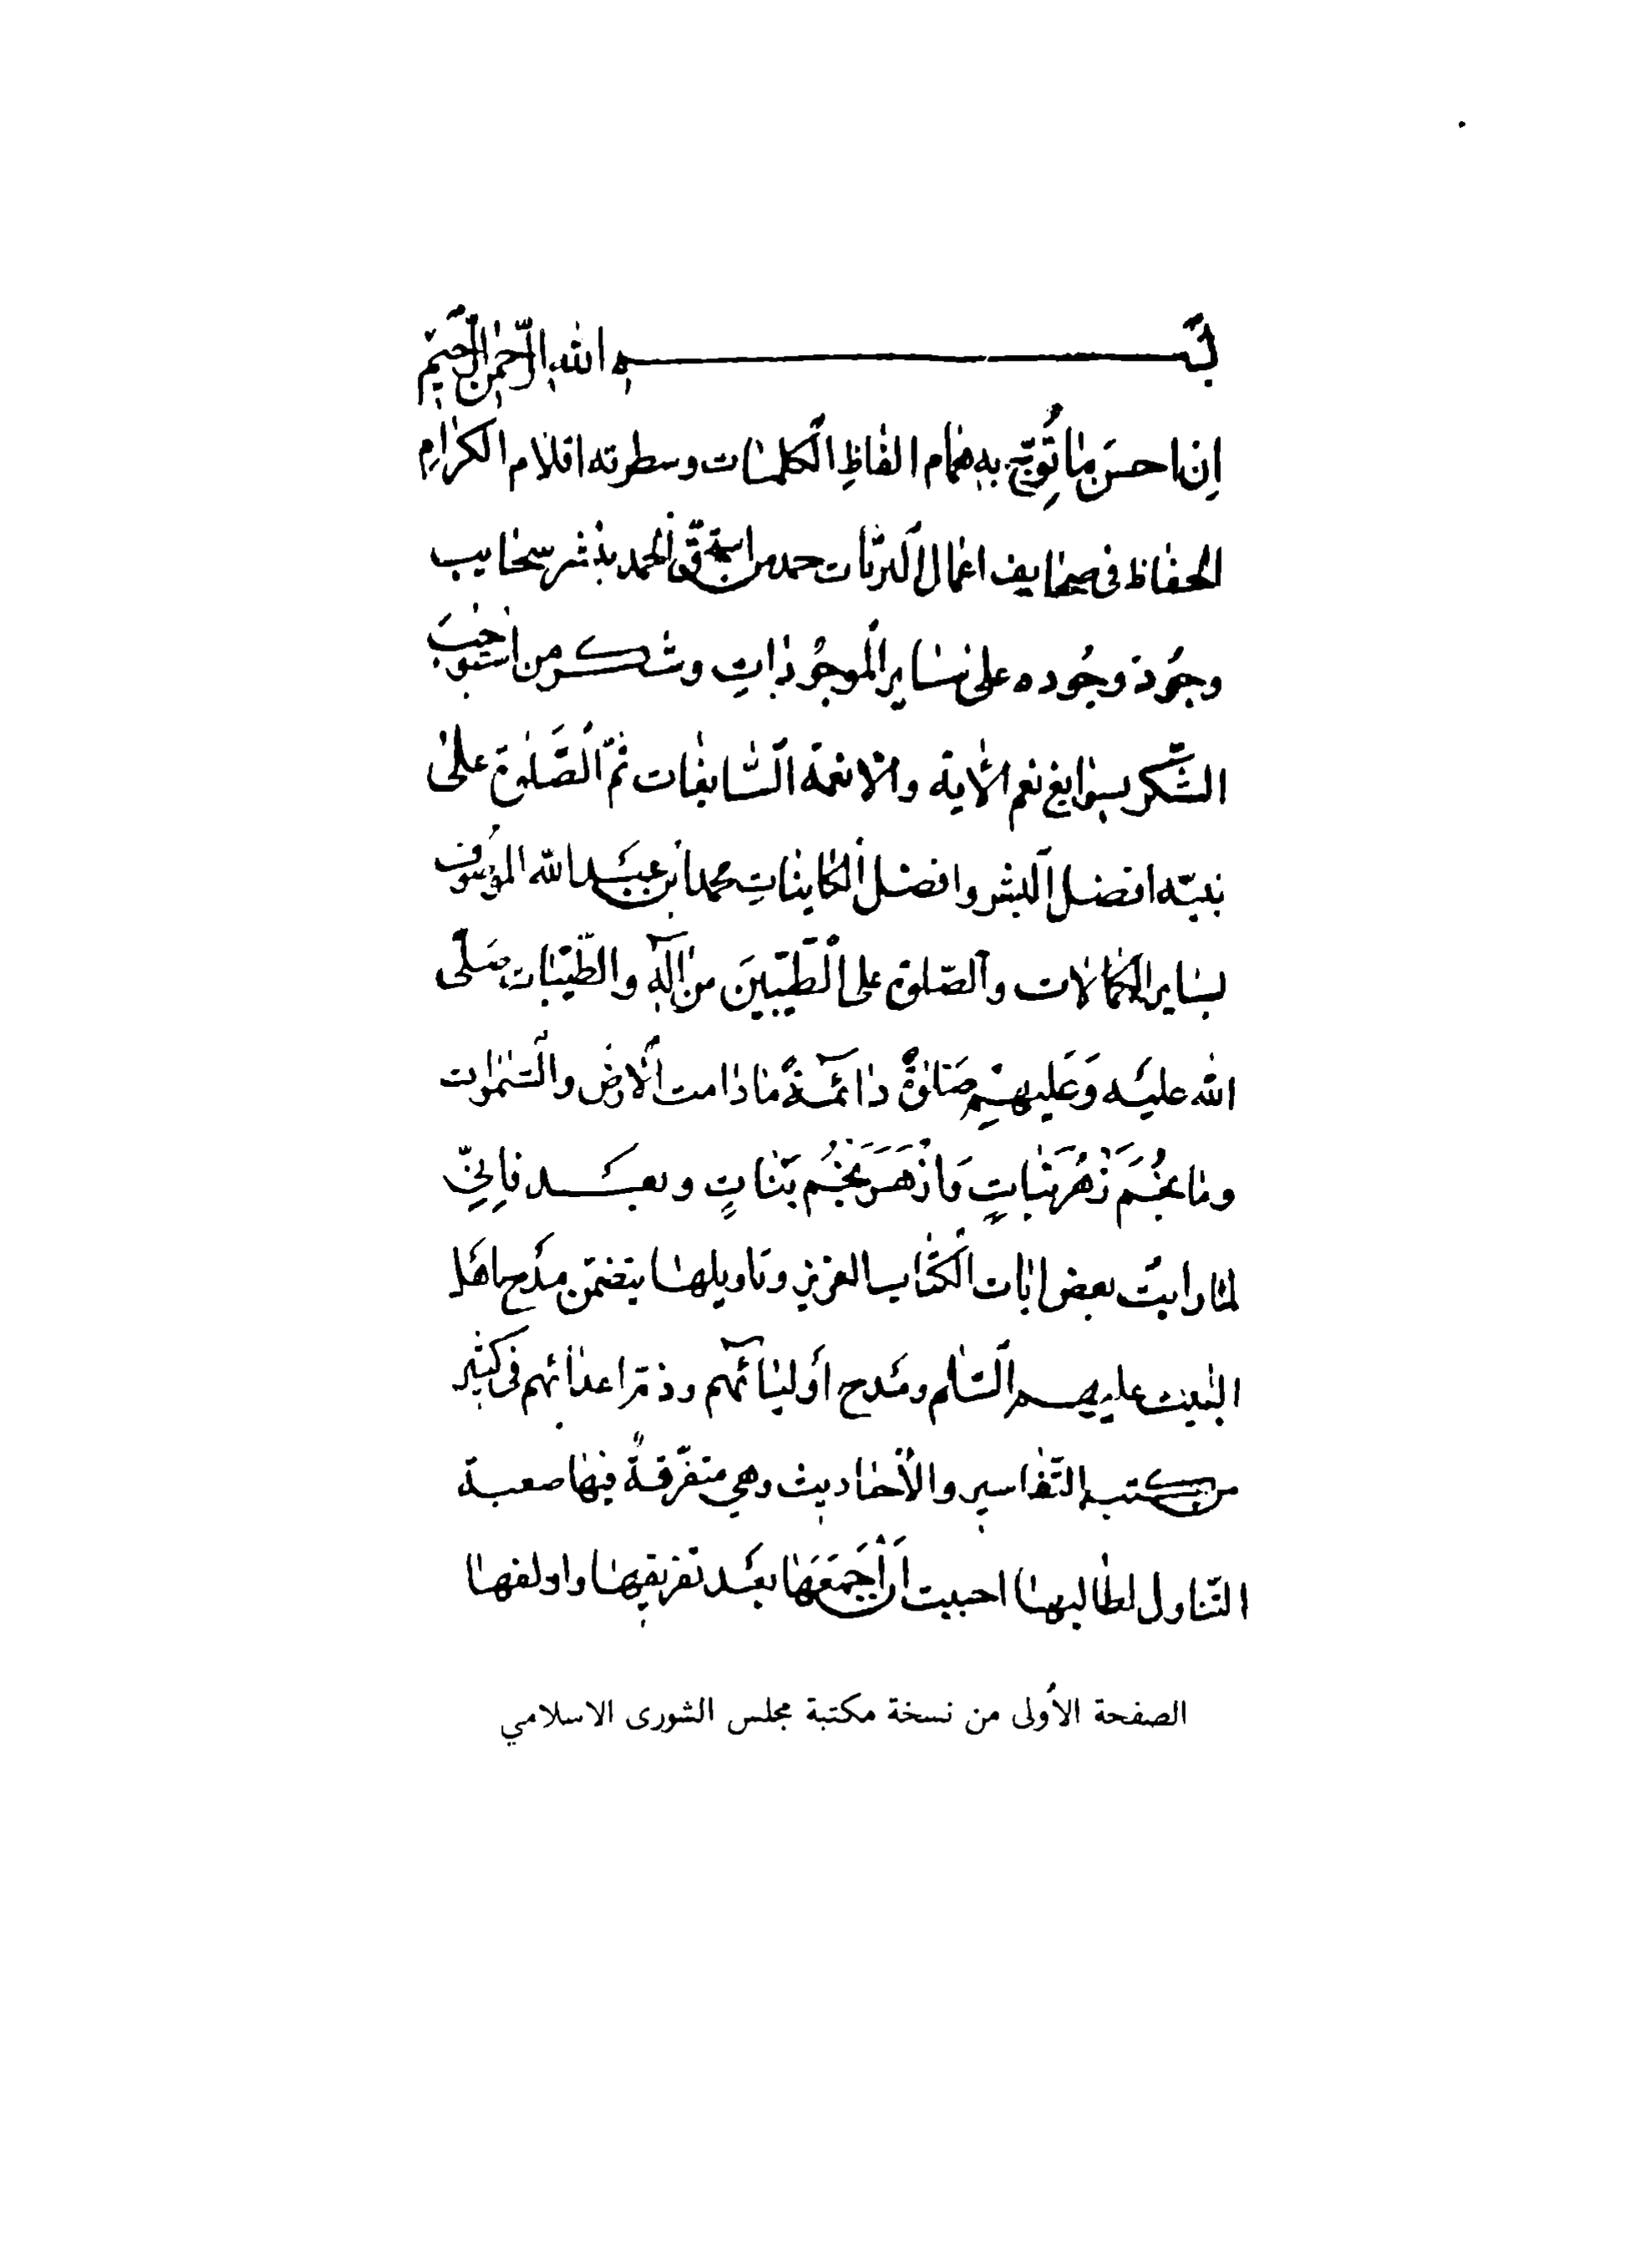 بسم الله الرحمن الرحيم
اِن احسَن ما تُوّج به هام الفاظِ الكلمات وسطرته اقلام الكرامِ
الحفاظ فى صحايف اعمال البريّات حمد من استحقّ الحمد بنشر سحايب
وجُود وجُوده على ساير الموجُوداتِ وشكر من استوجبَ
الشّكر بسوابغ نعم الاية والانعمه السّابغات ثمّ الصَّلوة على
نبيّه افضل البشر وافضل الكايناتِ محمد ابن عبد الله الموصوف
بساير الكمالات والصّلوة على الطّيّبينَ من آلِه والطّيّبات صَلّى
الله عليْه وَعَليهِمْ صَلوةً دائمةً ما دامت الارض والسّموات
وما نجُمَ زَهْر نَباتٍ وَازْهَرَ نَجْم بَناتٍ وبعْد فاِنّى
لمّا رايتُ بعض ايات الكتاب العزيز وتاويلها يتضمّن مدْح اهْل
البيت عليهم السّلم ومدْح أوليائهم وذمّ اعدائهم فى كثير
من كتب التّفاسير والأحاديث وهي متفرّقةٌ فيها صعبة
التّناول لطالبها احببت اَن اَجْمَعَهَا بعْد تفريقها واولفها
الصفحة الأولى من نسخة مكتبة مجلس الشورى الاسلامي